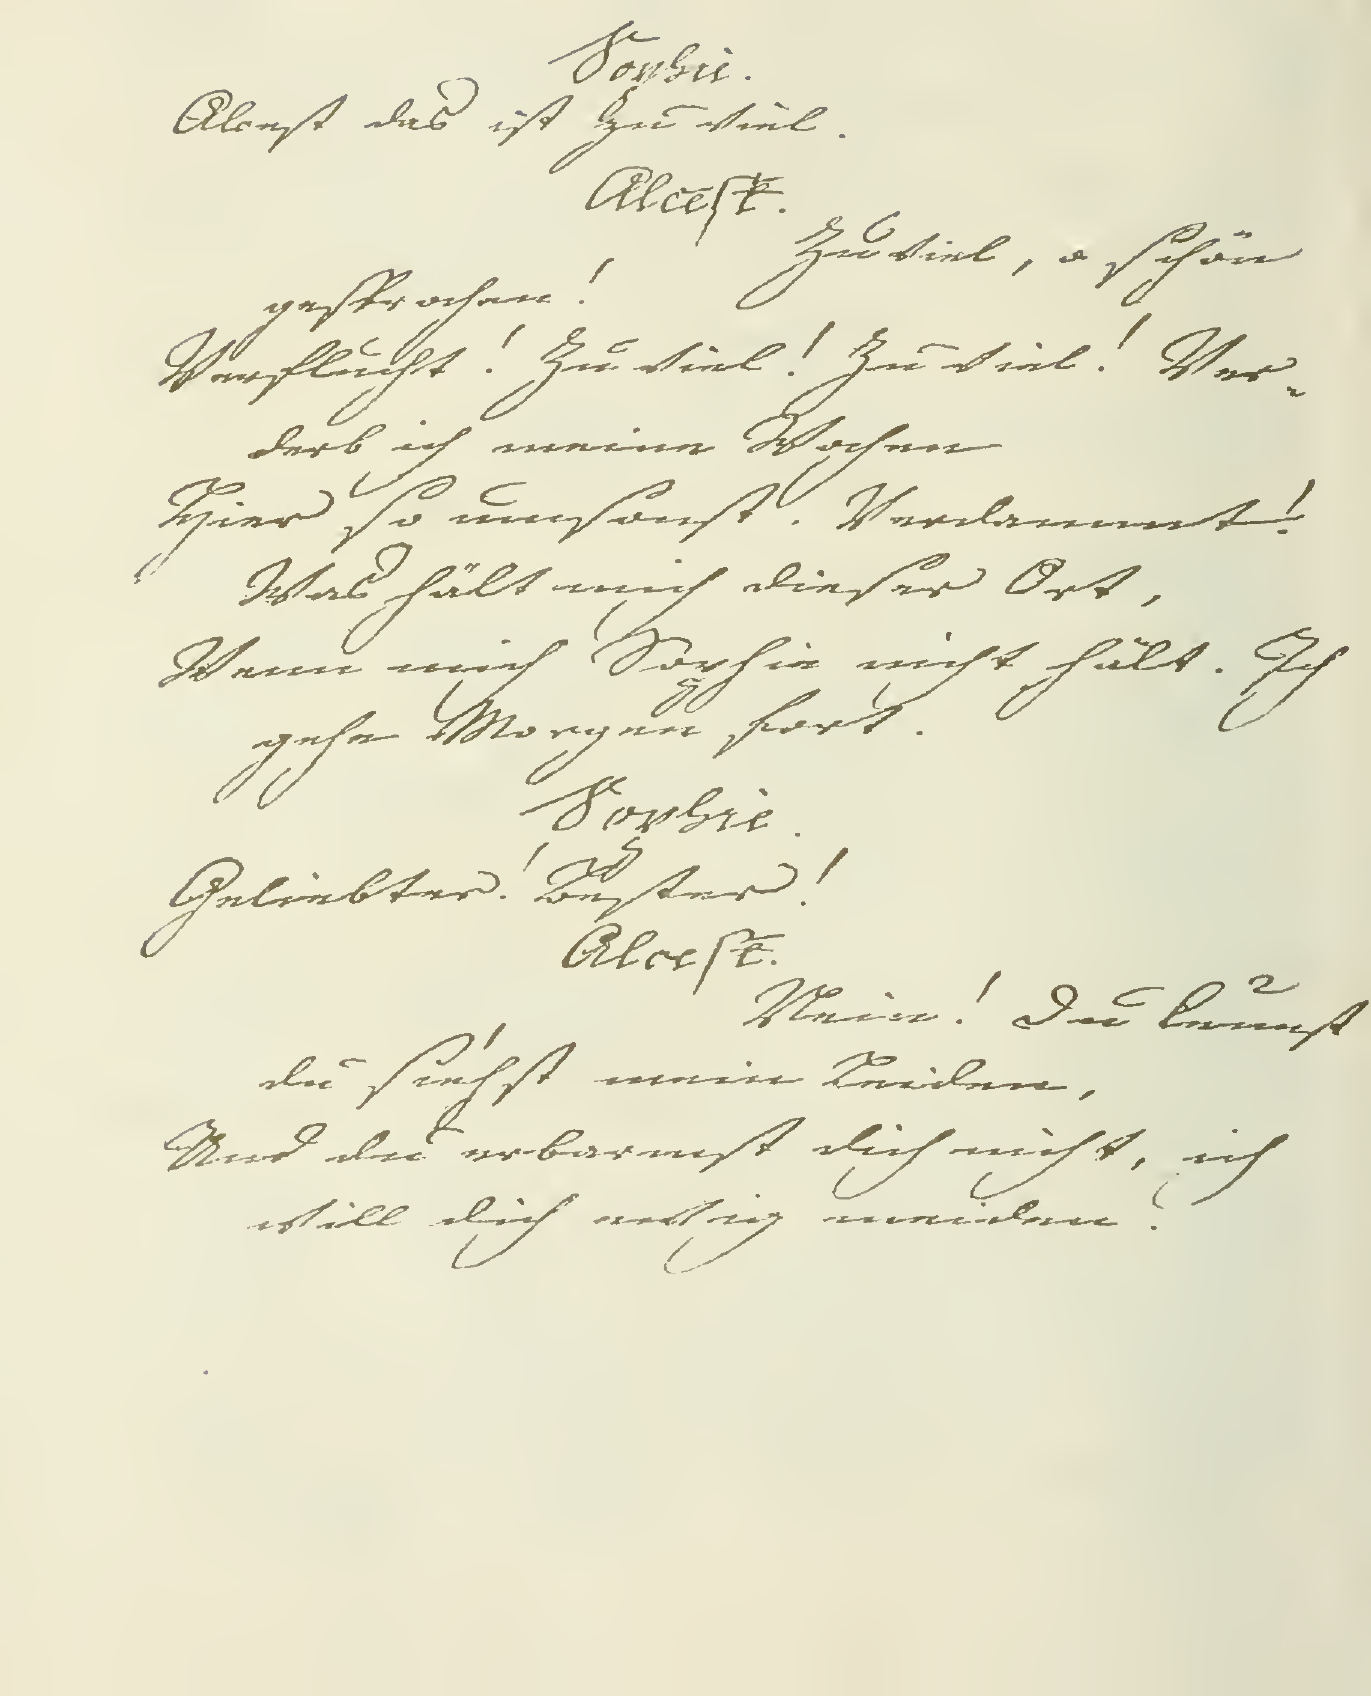 Sophie.
Alcest das ist zu viel.
Alcest.
Zu viel, o schön
gesprochen!
Verflucht! Zu viel! Zu viel! Ver-
derb ich meine Wochen
Hier so umsonst. Verdammt!
Was hält mich dieser Ort,
Wenn mich Sophie nicht hält. Ich
gehe Morgen fort.
Sophie.
Geliebter! Bester!
Alcest.
Nein! Du kennst
du siehst mein Leiden,
Und du erbarmst dich nicht, ich
will dich ewig meiden!